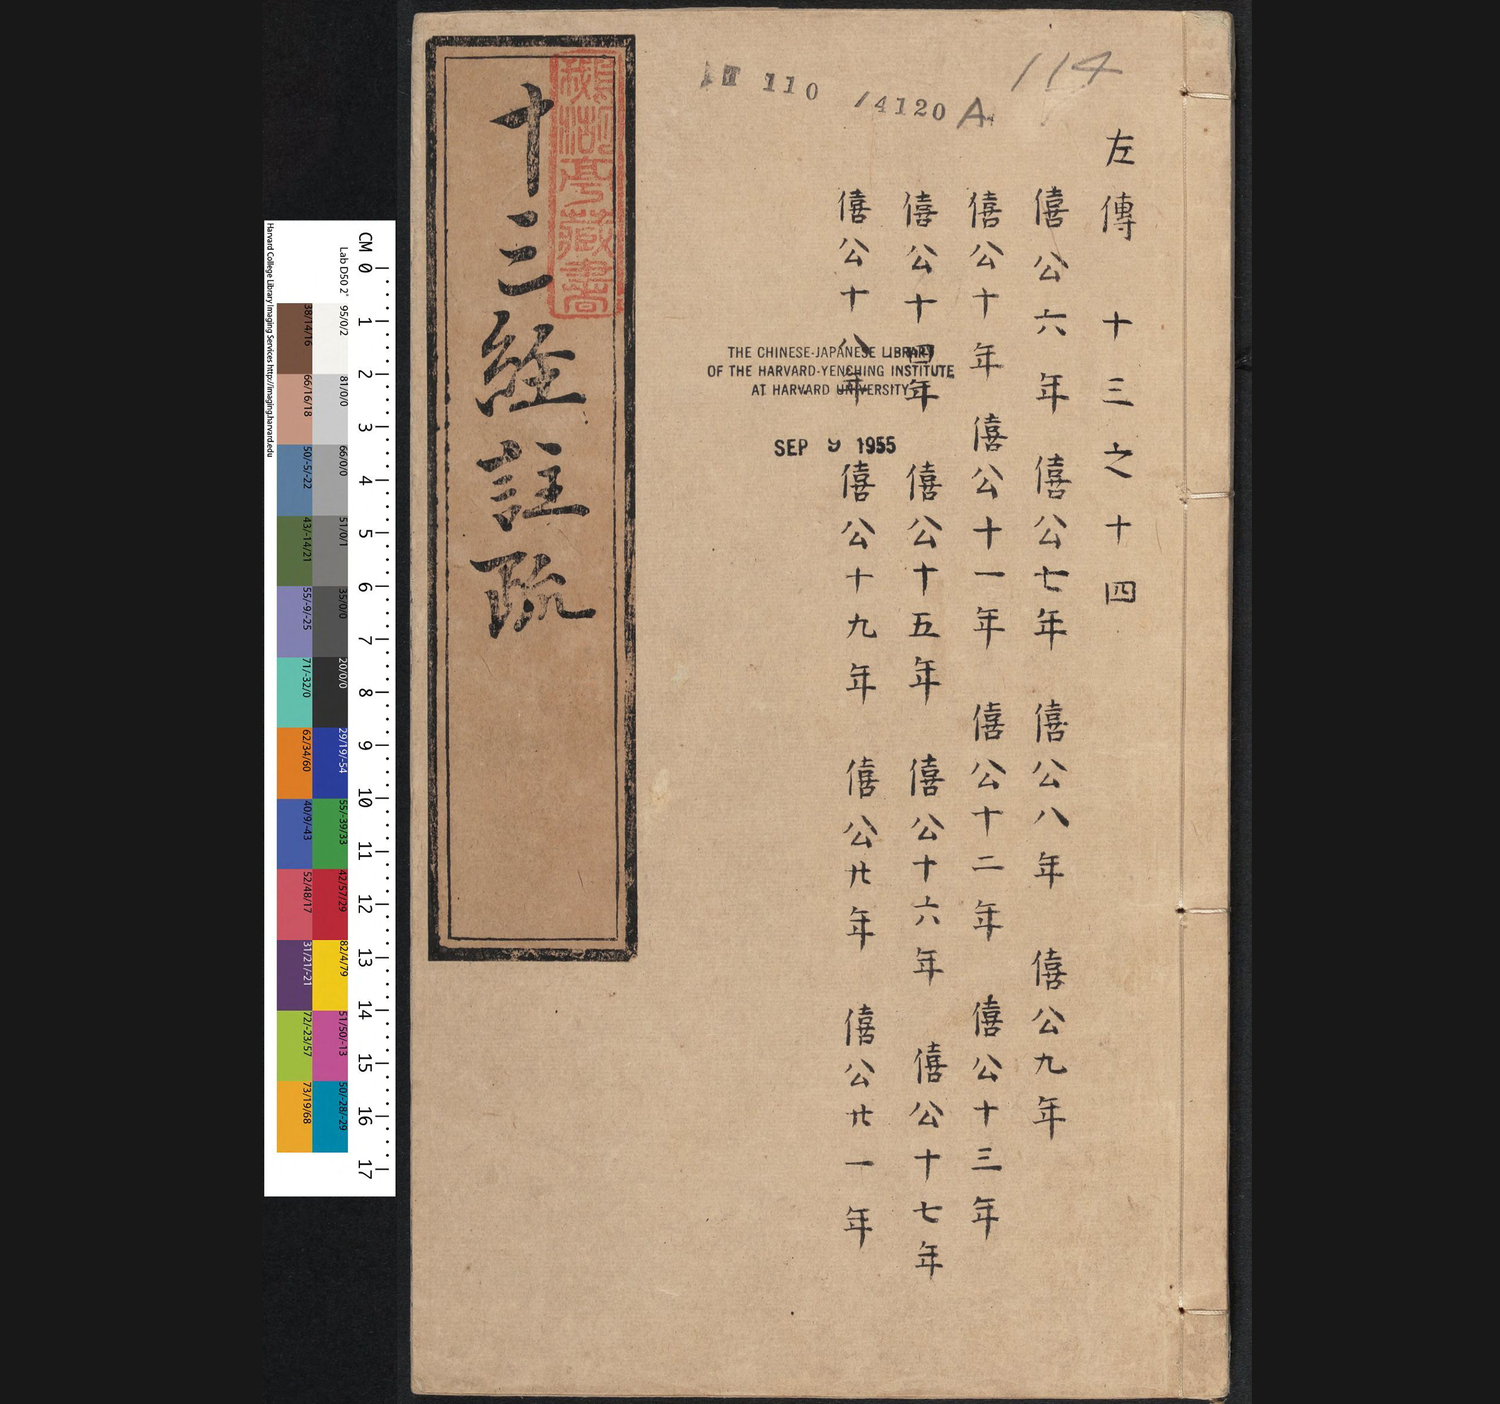 114
110 /4120 A
左傳 十三之十四
僖公六年 僖公七年 僖公八年 僖公九年
僖公十年 僖公十一年 僖公十二年 僖公十三年
僖公十四年 僖公十五年 僖公十六年 僖公十七年
僖公十八年 僖公十九年 僖公廿年 僖公廿一年
THE CHINESE-JAPANESE LIBRARY
OF THE HARVARD-YENCHING INSTITUTE
AT HARVARD UNIVERSITY
SEP 9 1955
十三經註疏
亭藏書
CM 0 1 2 3 4 5 6 7 8 9 10 11 12 13 14 15 16 17
Lab D50 2°
95/0/2
81/0/0
66/0/0
51/0/1
35/0/0
20/0/0
29/19/-54
55/-39/33
42/57/29
82/4/79
51/50/-13
50/-28/-29
38/14/16
66/16/18
50/-5/-22
43/-14/21
55/-9/-25
71/-32/0
62/34/60
40/9/-43
52/48/17
31/21/-21
72/-23/57
73/19/68
Harvard College Library Imaging Services http://imaging.harvard.edu